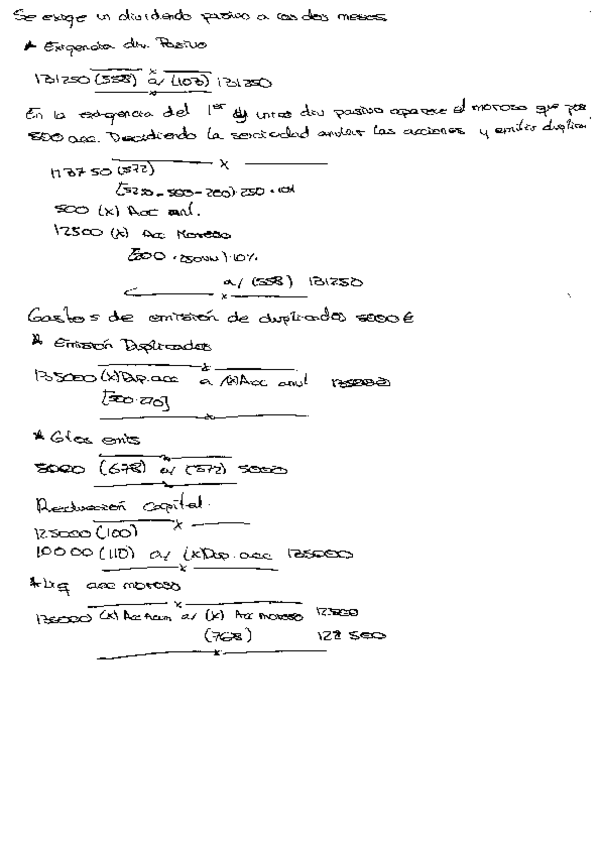 Se exige un dividendo pasivo a los dos meses
* Exigencia div. Pasivo
131250 (558) a/ (103) 131250
En la exigencia del 1er y único div pasivo aparece el moroso que por
500 acc. Decidiendo la sociedad anular las acciones y emitir duplica
118750 (572) x
500 (x) Acc anl.
12500 (x) Acc Moroso
a/ (558) 131250
Gastos de emisión de duplicados 5000 €
* Emisión Duplicados
135000 (x) Dup. acc a /(x) Acc anul 135000
[500·270]
* Gtos emis
5000 (678) a/ (572) 5000
Reducción Capital.
125000 (100)
10000 (110) a/ (x) Dup. acc 135000
* Liq acc moroso
a/ (x) Acc moroso 12500
(768) 122500